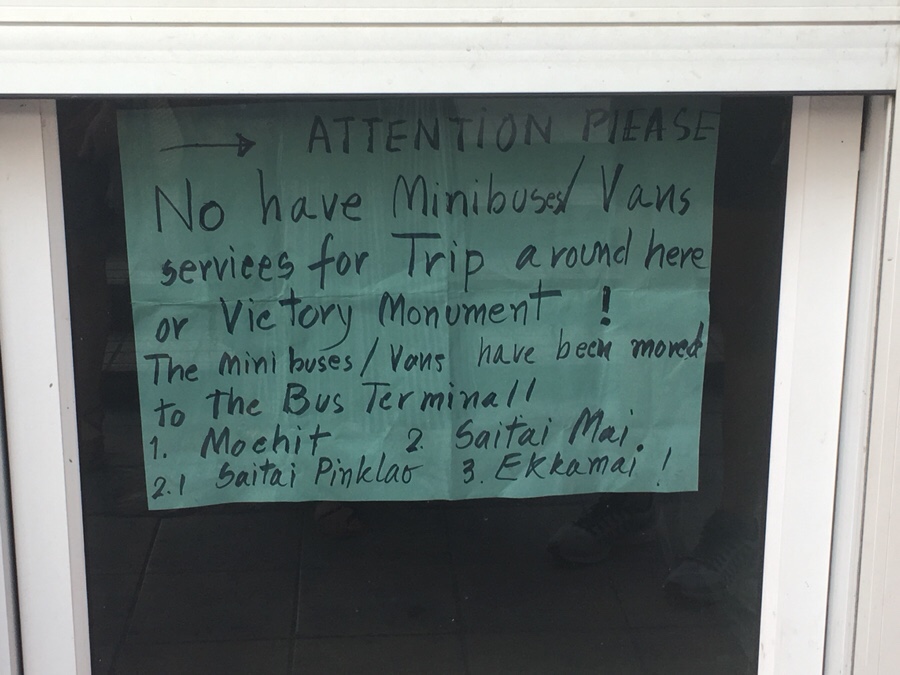 → ATTENTION PlEASE
No have Minibuses/ Vans
services for Trip around here
or Victory Monument !
The mini buses/Vans have been moved
to the Bus Terminal!
1. Mochit 2. Saitai Mai.
2.1 Saitai Pinklao 3. Ekkamai !